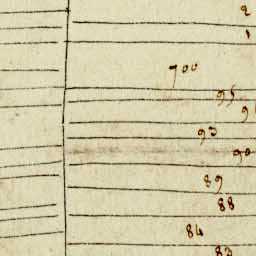 2
1
700
95
9
93
90
89
88
84
83